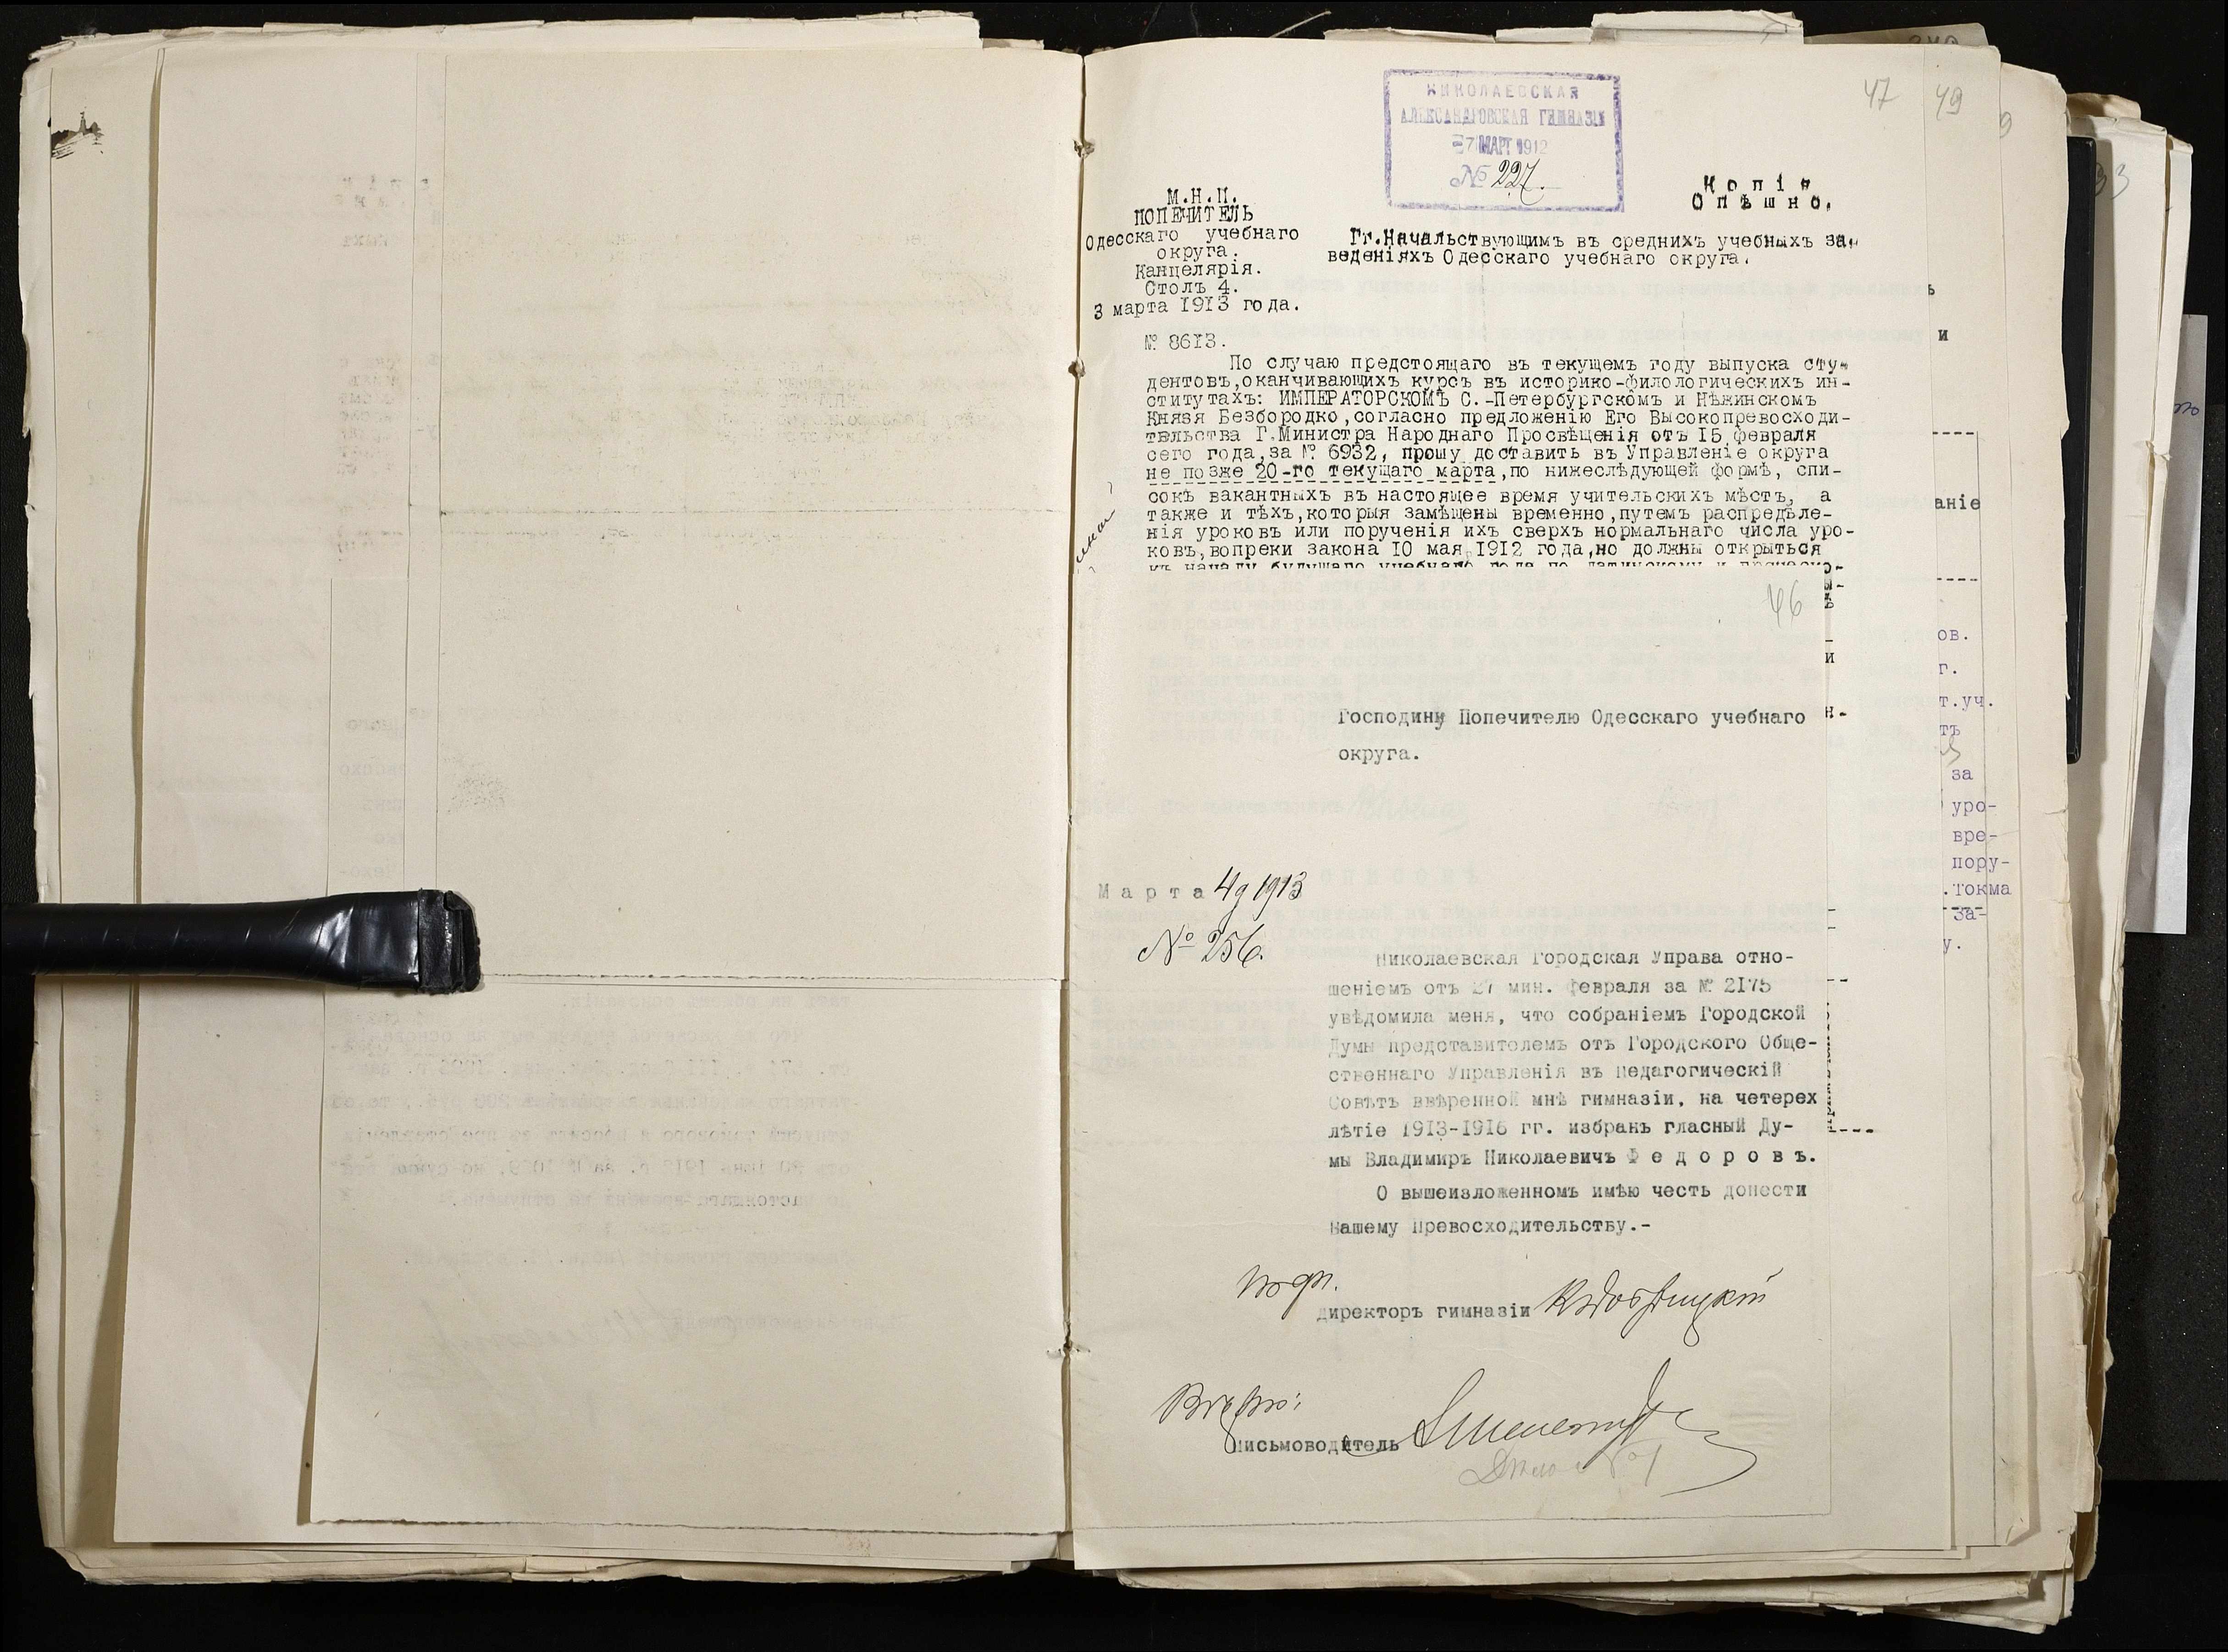 НИКОЛАЕВСКАЯ
АЛЕКСАНДРОВСКАЯ ГИМНАЗІЯ
7 МАРТ 1912
№ 227.
47
49
Копія
Спѣшно.
М.Н.П.
ПОПЕЧИТЕЛЬ
Одесскаго учебнаго
округа.
Канцелярія.
Столъ 4.
3 марта 1913 года.
№ 8613.
Гг.Начальствующимъ въ среднихъ учебныхъ за-
веденіяхъ Одесскаго учебнаго округа.
По случаю предстоящаго въ текущемъ году выпуска сту-
дентовъ,оканчивающихъ курсъ въ историко-филологическихъ ин-
ститутахъ: ИМПЕРАТОРСКОМЪ С.-Петербургскомъ и Нѣжинскомъ
Князя Безбородко,согласно предложенію Его Высокопревосходи-
тельства Г.Министра Народнаго Просвѣщенія отъ 15 февраля
сего года,за № 6932, прошу доставить въ Управленіе округа
не позже 20-го текущаго марта,по нижеслѣдующей формѣ, спи-
сокъ вакантныхъ въ настоящее время учительскихъ мѣстъ, а
также и тѣхъ,которыя замѣщены временно,путемъ распредѣле-
нія уроковъ или порученія ихъ сверхъ нормальнаго числа уро-
ковъ,вопреки закона 10 мая 1912 года,но должны открыться
къ началу будущаго учебнаго года по латинскому и греческо-
46
Господину Попечителю Одесскаго учебнаго
округа.
Марта 4 д 1913
№ 256.
Николаевская Городская Управа отно-
шеніемъ отъ 27 мин. февраля за № 2175
увѣдомила меня, что собраніемъ Городской
Думы представителемъ отъ Городского Обще-
ственнаго Управленія въ Педагогическій
Совѣтъ ввѣренной мнѣ гимназіи, на четерех
лѣтіе 1913-1916 гг. избранъ гласный Ду-
мы Владимиръ Николаевичъ Федоровъ.
О вышеизложенномъ имѣю честь донести
Вашему Превосходительству.-
директоръ гимназіи
Вѣрно:
Письмоводитель
Дѣло № 1
аніе
ов.
г.
т.уч.
тъ
за
уро-
вре-
пору-
.Токма
за-
у.